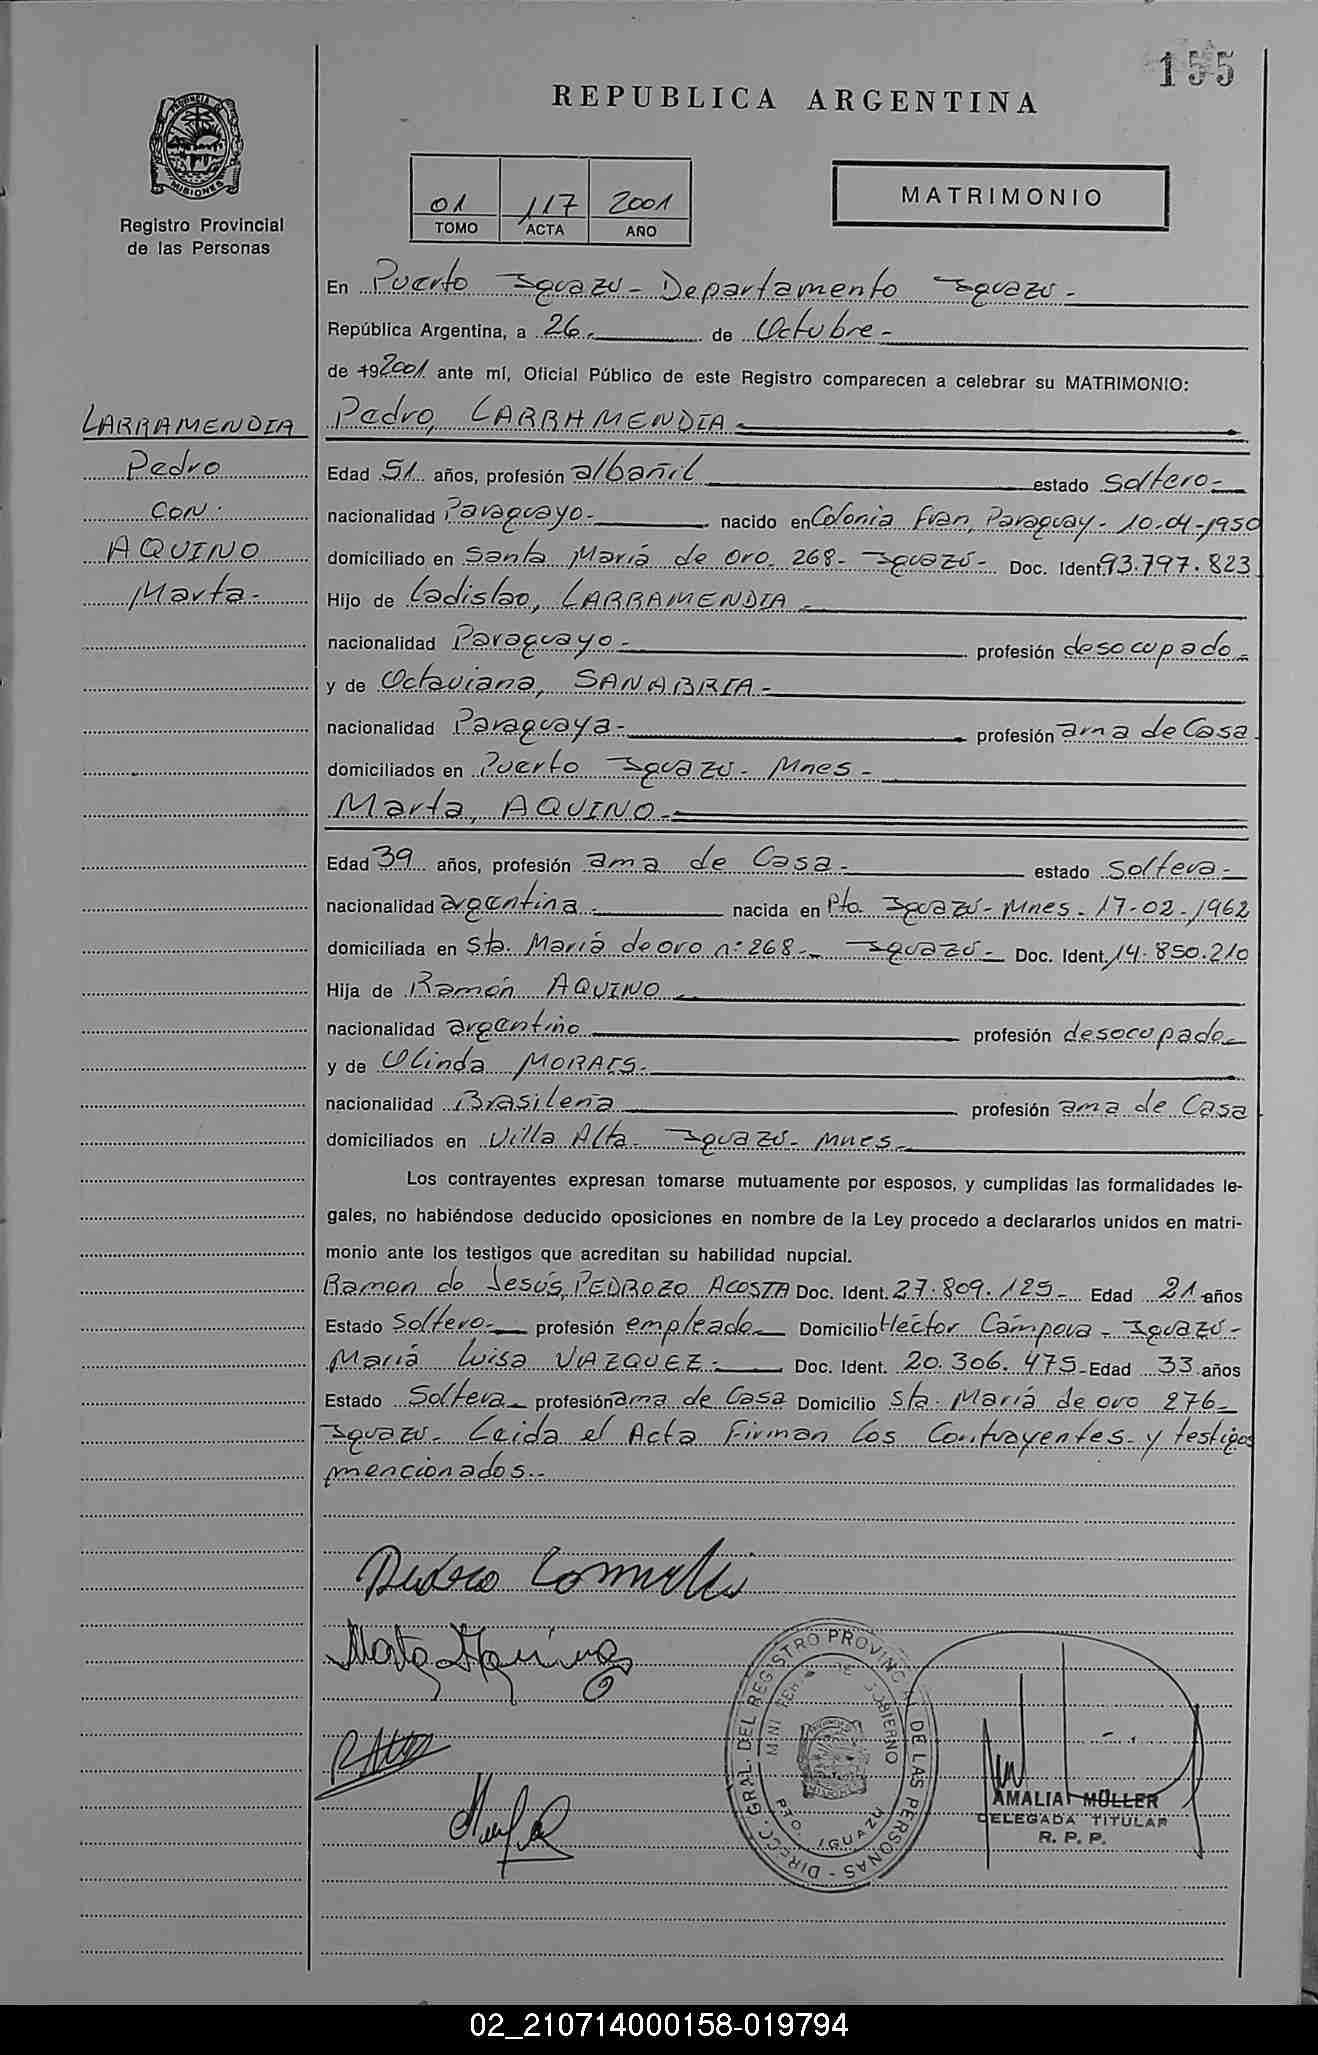 155
REPUBLICA ARGENTINA
PROVINCIA DE MISIONES
Registro Provincial
de las Personas
01 117 2001
TOMO ACTA AÑO
MATRIMONIO
En Puerto Iguazu - Departamento Iguazu -
República Argentina, a 26 - de Octubre -
de 192001 ante mí, Oficial Público de este Registro comparecen a celebrar su MATRIMONIO:
LARRAMENDIA
Pedro
con
AQUINO
Marta -
Pedro, LARRAMENDIA
Edad 51 años, profesión albañil estado Soltero -
nacionalidad Paraguayo - nacido en Colonia Fran, Paraguay - 10-04-1950
domiciliado en Santa María de oro 268 - Iguazú - Doc. Ident. 93.797.823
Hijo de Ladislao, LARRAMENDIA -
nacionalidad Paraguayo - profesión desocupado -
y de Octaviana, SANABRIA -
nacionalidad Paraguaya - profesión ama de Casa
domiciliados en Puerto Iguazu - Mnes -
Marta, AQUINO -
Edad 39 años, profesión ama de Casa - estado Soltera -
nacionalidad argentina - nacida en Pto. Iguazú - Mnes - 17-02-1962
domiciliada en Sta. María de oro n° 268 - Iguazú - Doc. Ident. 14.850.210
Hija de Ramón AQUINO -
nacionalidad argentino profesión desocupado -
y de Olinda MORAIS -
nacionalidad Brasileña profesión ama de Casa
domiciliados en Villa Alta - Iguazú - Mnes -
Los contrayentes expresan tomarse mutuamente por esposos, y cumplidas las formalidades le-
gales, no habiéndose deducido oposiciones en nombre de la Ley procedo a declararlos unidos en matri-
monio ante los testigos que acreditan su habilidad nupcial.
Ramon de Jesús, PEDROZO ACOSTA Doc. Ident. 27.809.125 - Edad 21 años
Estado Soltero - profesión empleado - Domicilio Héctor Cámpora - Iguazú -
María Luisa VAZQUEZ - Doc. Ident. 20.306.475 - Edad 33 años
Estado Soltera - profesión ama de Casa Domicilio Sta. María de oro 276 -
Iguazu - Leida el Acta Firman los Contrayentes - y testigos
mencionados -
Marta Aquino
DIRECC. GRAL. DEL REGISTRO PROVINCIAL DE LAS PERSONAS -
PTO. IGUAZU
AMALIA MÜLLER
DELEGADA TITULAR
R. P. P.
02_210714000158-019794